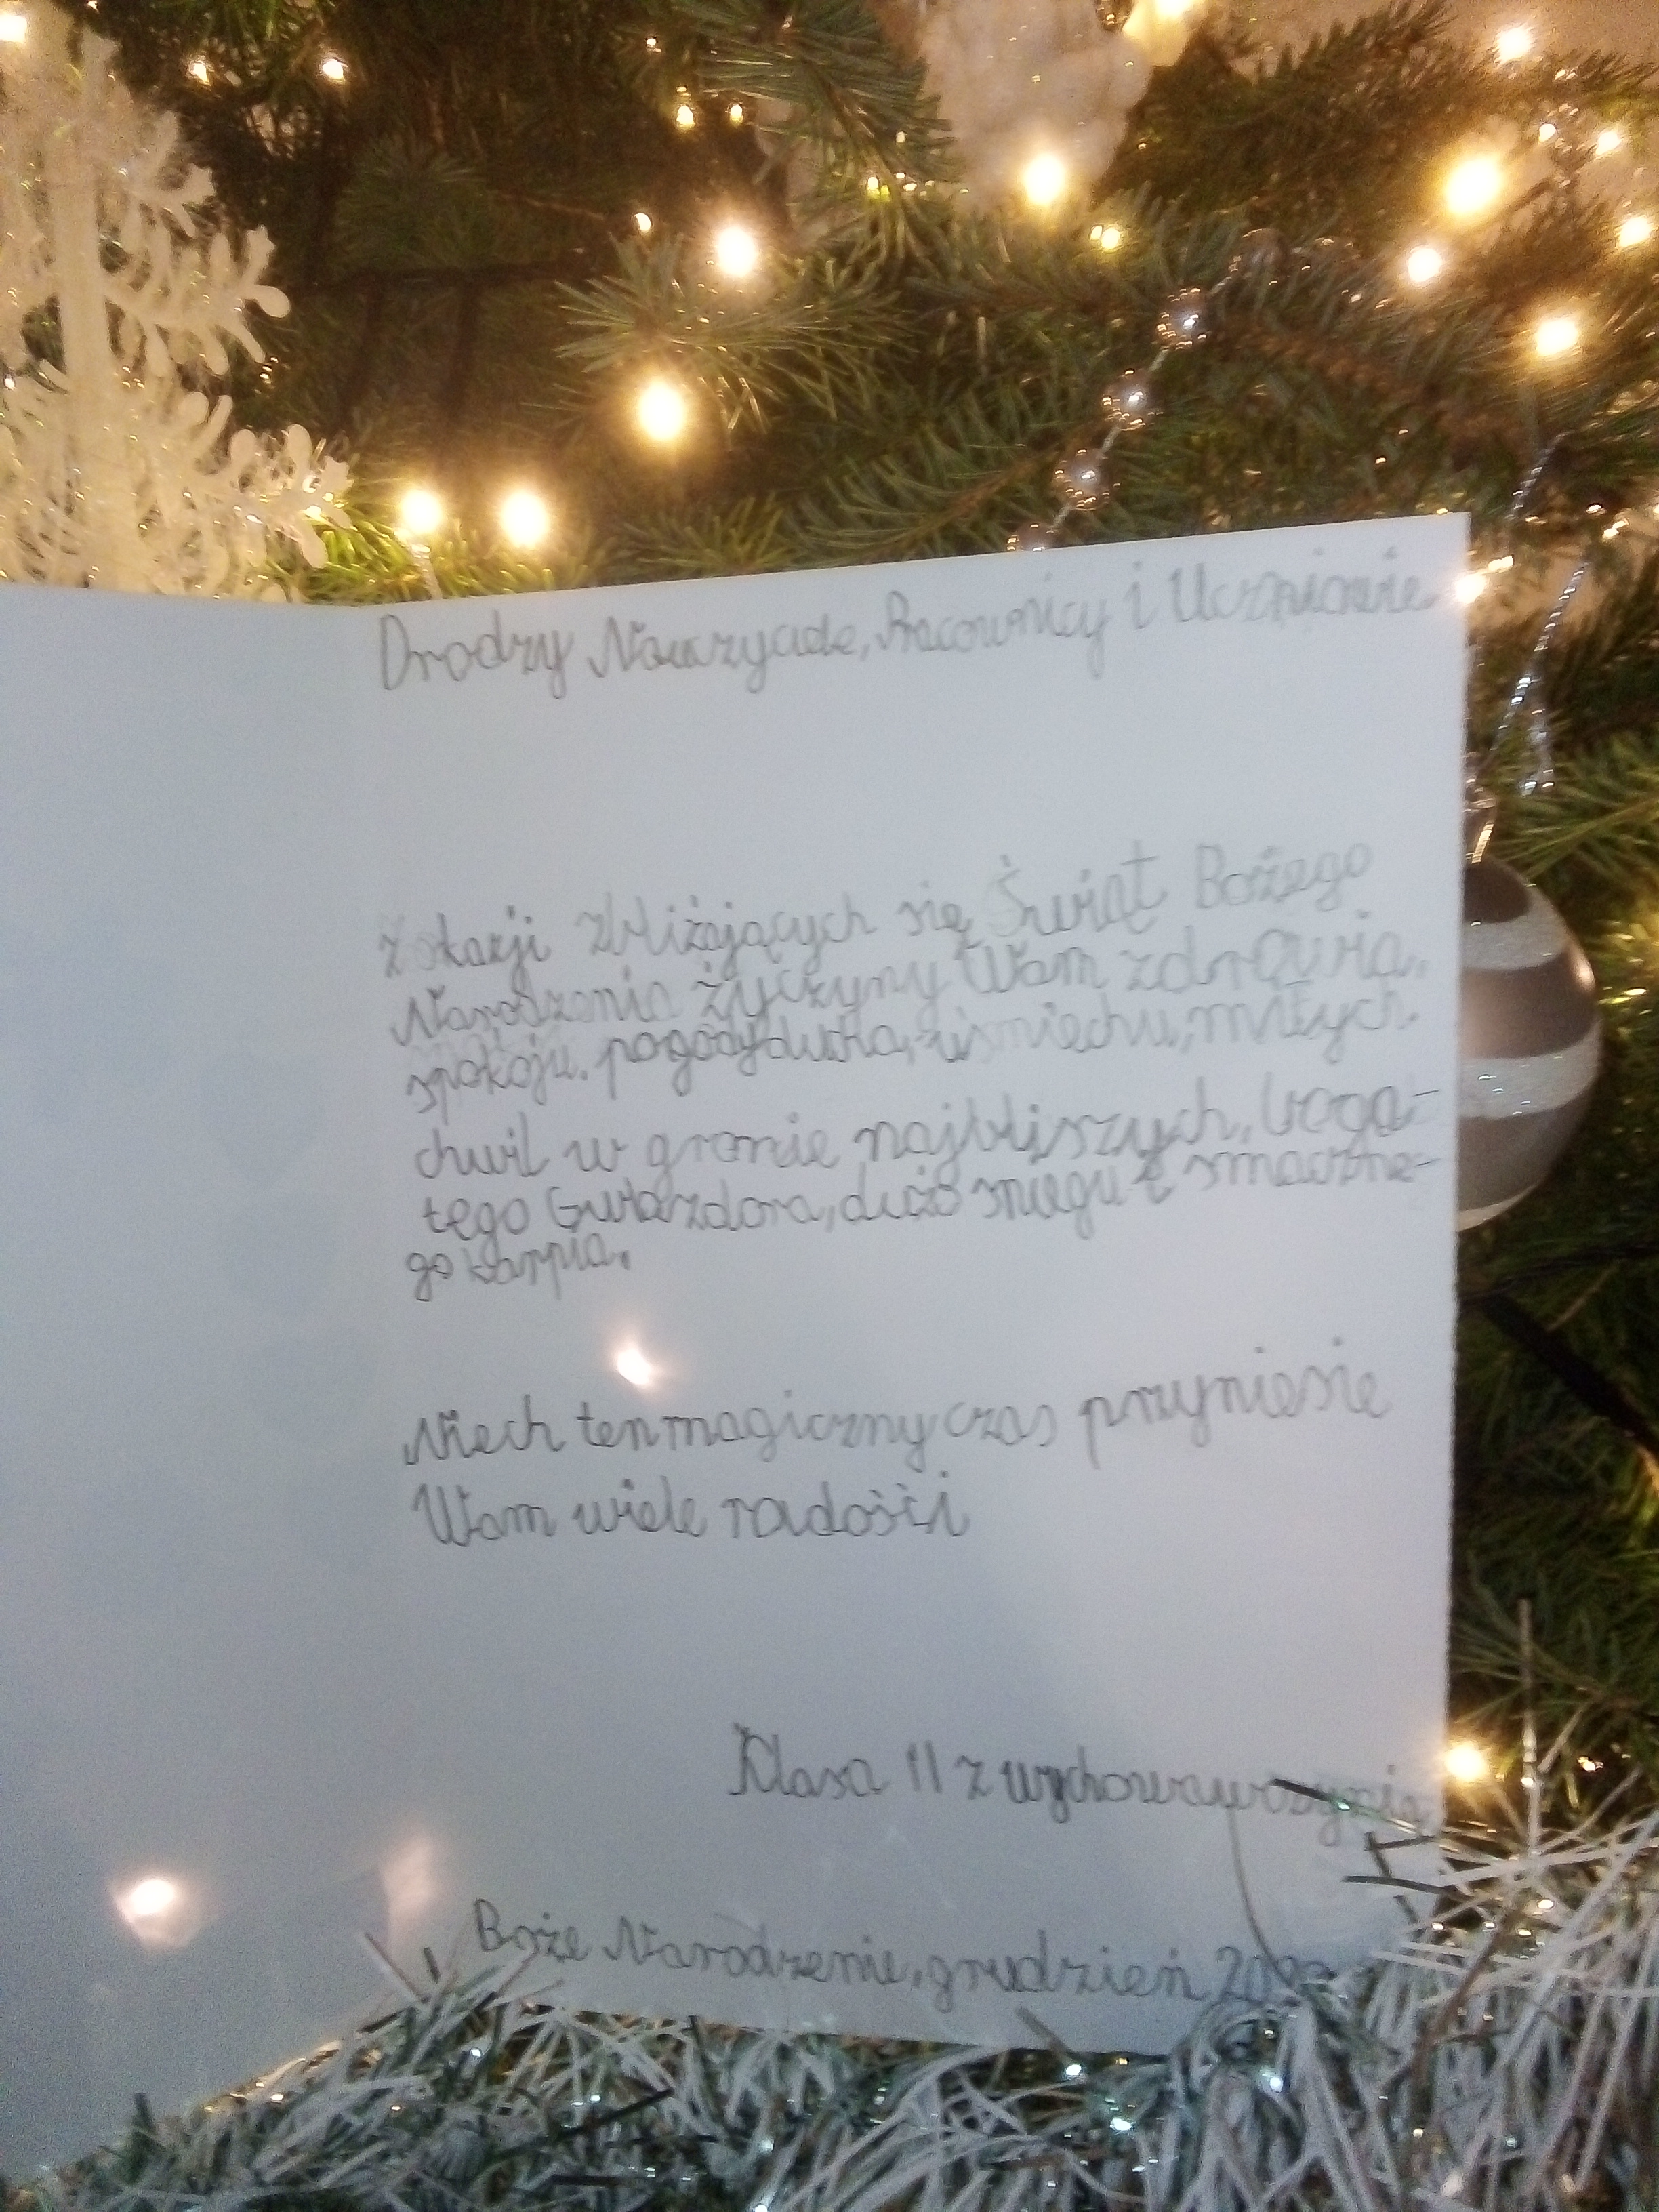 Drodzy Nauczyciele, Pracownicy i Uczniowie
Z okazji zbliżających się Świąt Bożego
Narodzenia życzymy Wam zdrowia,
spokoju, pogody ducha, uśmiechu, miłych
chwil w gronie najbliższych, boga-
tego Gwiazdora, dużo śniegu i smaczne-
go karpia.
Niech ten magiczny czas przyniesie
Wam wiele radości
Klasa II z wychowawczynią
Boże Narodzenie, grudzień